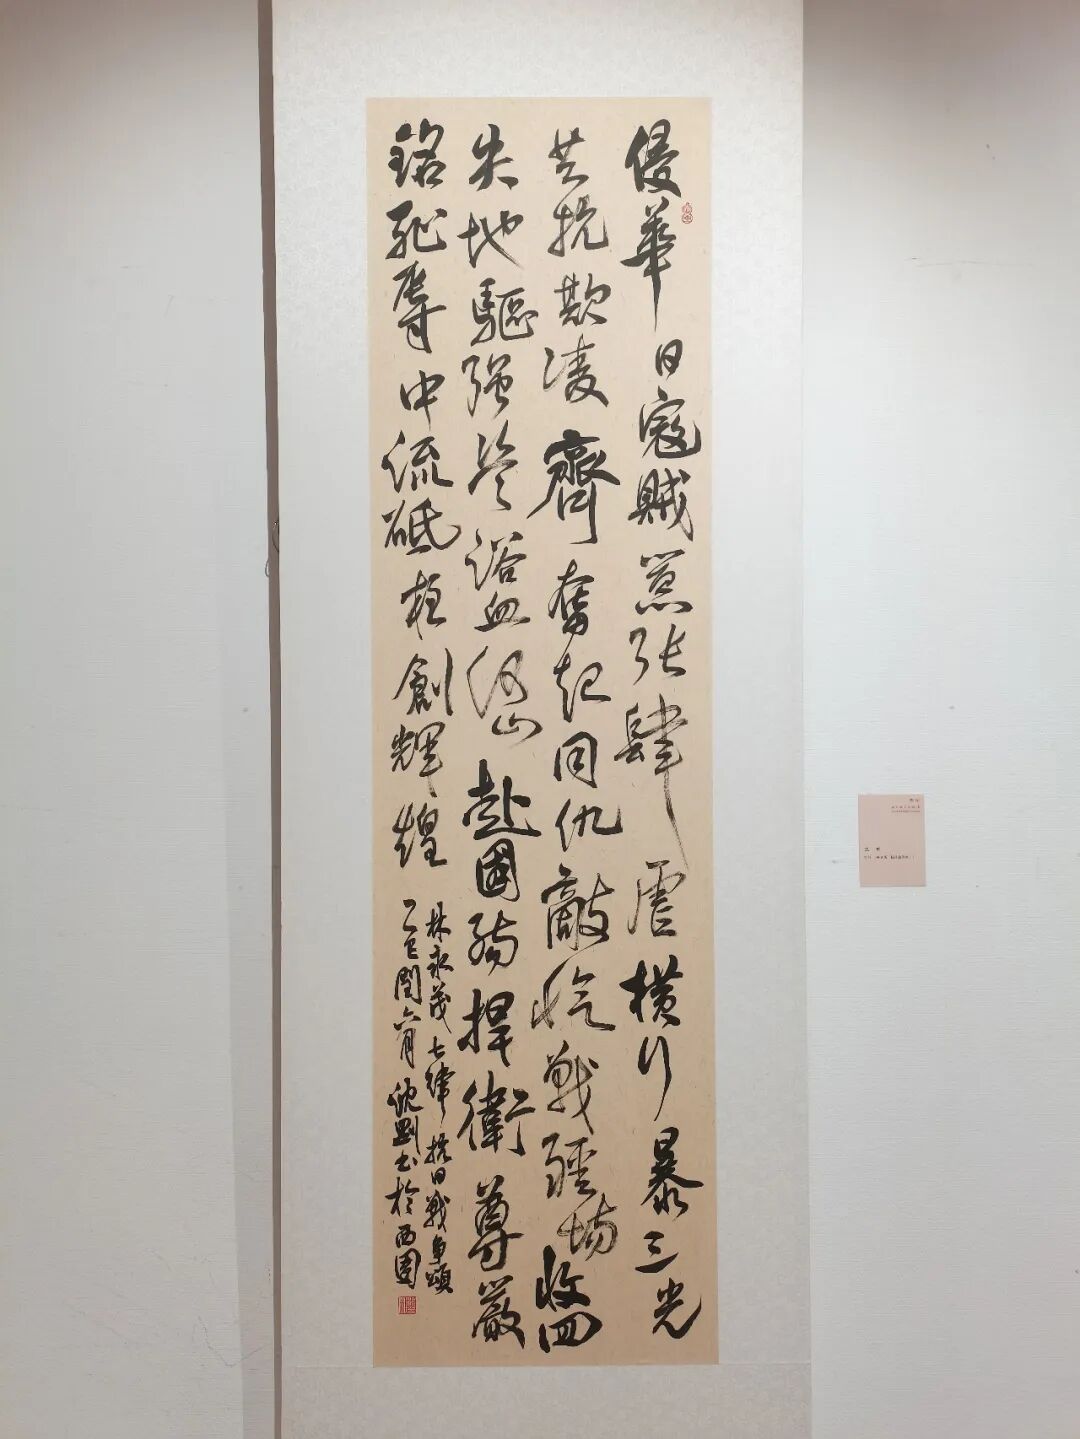 侵華日寇賊焰張肆虐橫行暴三光
共抗欺凌齊奮起同仇敵愾戰疆場收回
失地驅強鬼浴血河山赴國殤捍衛尊嚴
銘恥辱中流砥柱創輝煌
林永茂七律抗日戰爭頌
乙巳閏六月沈剛書於西園